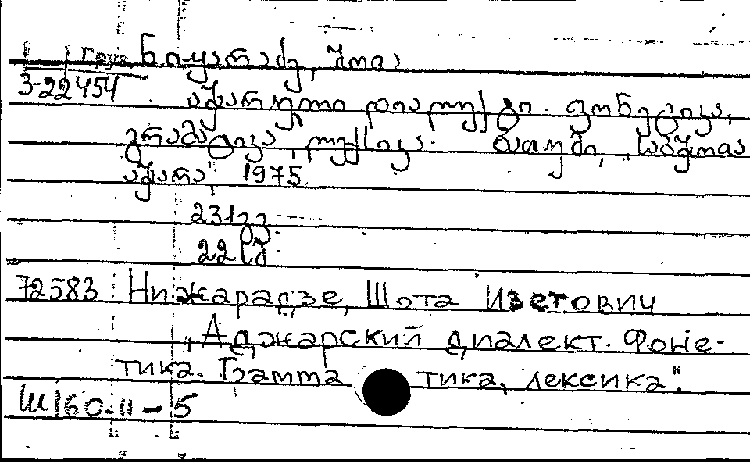 груз. ნიჟარაძე, შოთა
3-22454 აჭარული დიალექტი. ფონეტიკა,
გრამატიკა, ლექსიკა. ბათუმი, საბჭოთა
აჭარა, 1975
231გვ.
22 სმ.
72583 Нижарадзе, Шота Изетович
"Аджарский диалект. Фоне-
тика. Грамма тика, лексика".
Ш160.11-5